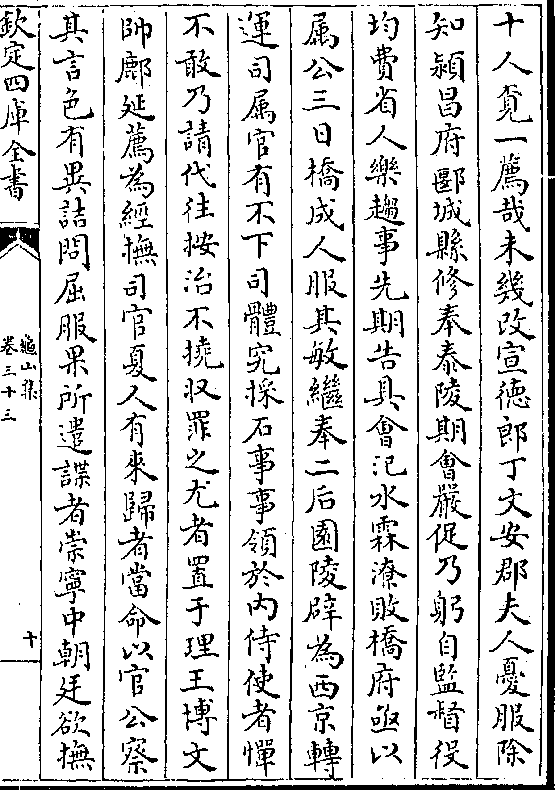 十人竟一薦哉未幾改宣徳郎丁文安郡夫人憂服除
知潁昌府郾城縣修奉泰陵期會嚴促乃躬自監督役
均費省人樂趨事先期告具會汜水霖潦敗橋府亟以
属公三日橋成人服其敏繼奉二后園陵辟為西京轉
運司属官有不下司體究採石事事領於内侍使者憚
不敢乃請代往按治不撓収罪之尤者置于理王博文
帥鄜延薦為經撫司官夏人有來歸者當命以官公察
其言色有異詰問屈服果所遣諜者崇寧中朝廷欲撫
欽定四庫全書
龜山集
卷三十三
十